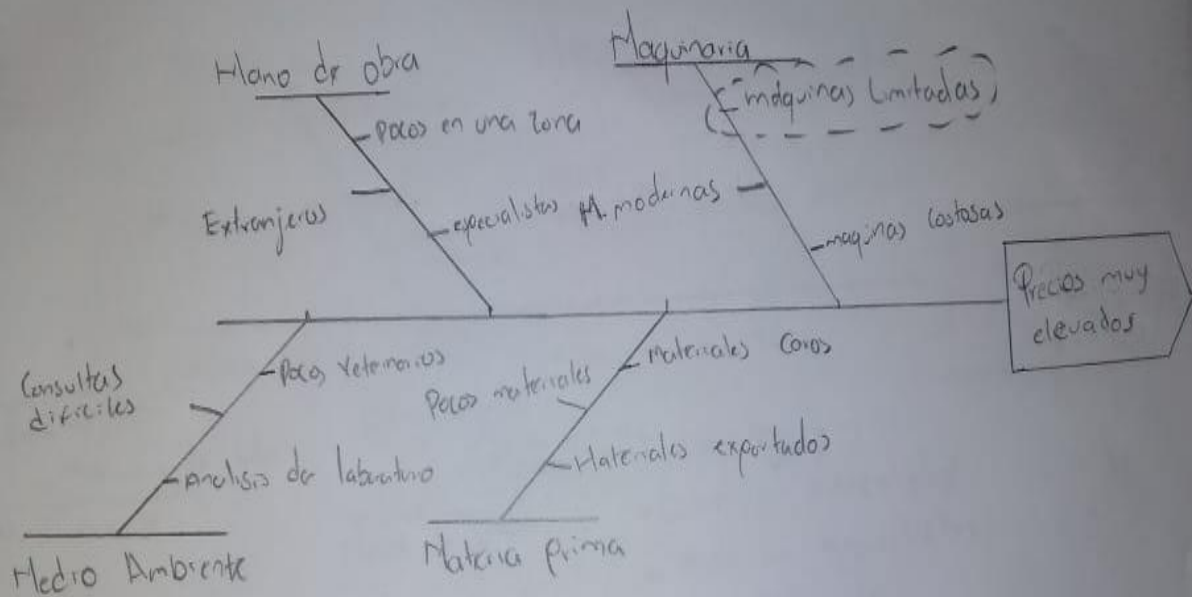 Mano de obra
Pocos en una zona
Extranjeros
especialistas
Maquinaria
máquinas limitadas
M. modernas
maquinas costosas
Precios muy
elevados
Consultas
dificiles
Pocos veterinarios
Analisis de laboratorio
Medio Ambiente
Materiales caros
Pocos materiales
Materiales exportados
Materia prima